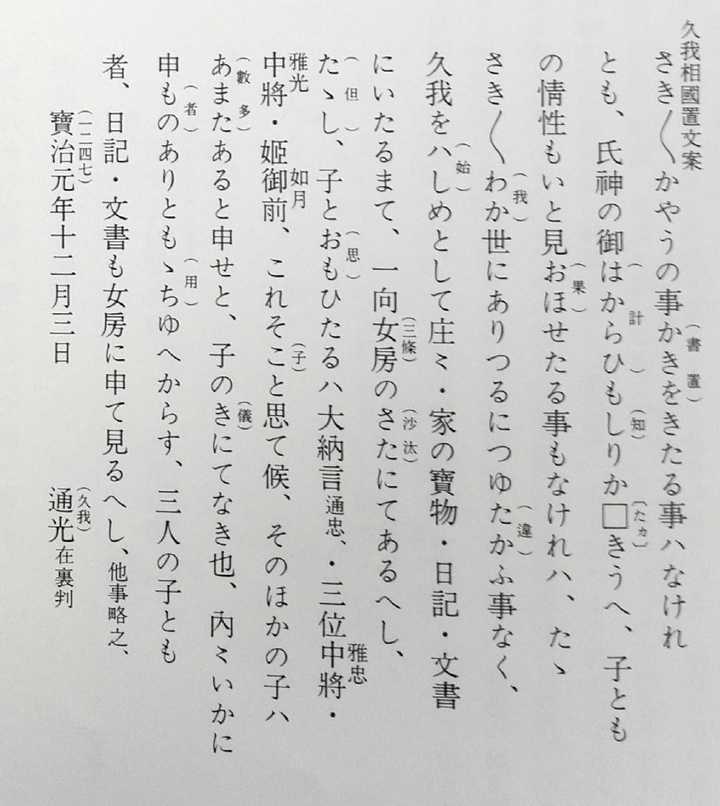 久我相國置文案
さき〳〵かやうの事かきをき(書置)たる事ハなけれ
とも、氏神の御はからひ(計)もしり(知)か□(たカ)きうへ、子とも
の情性もいと見おほせ(果)たる事もなけれハ、たゝ
さき〳〵わか(我)世にありつるにつゆたかふ(違)事なく、
久我をハしめ(始)として庄〻・家の寶物・日記・文書
にいたるまて、一向女房(三條)のさた(沙汰)にてあるへし、
たゝし(但)、子とおもひ(思)たるハ大納言通忠、・三位中將雅忠・
中將雅光・姬御前如月、これそこ(子)と思て候、そのほかの子ハ
あまた(數多)あると申せと、子のき(儀)にてなき也、內〻いかに
申もの(者)ありともゝちゆ(用)へからす、三人の子とも
者、日記・文書も女房に申て見るへし、他事略之、
寶治元年(一二四七)十二月三日 通光(久我)在裏判